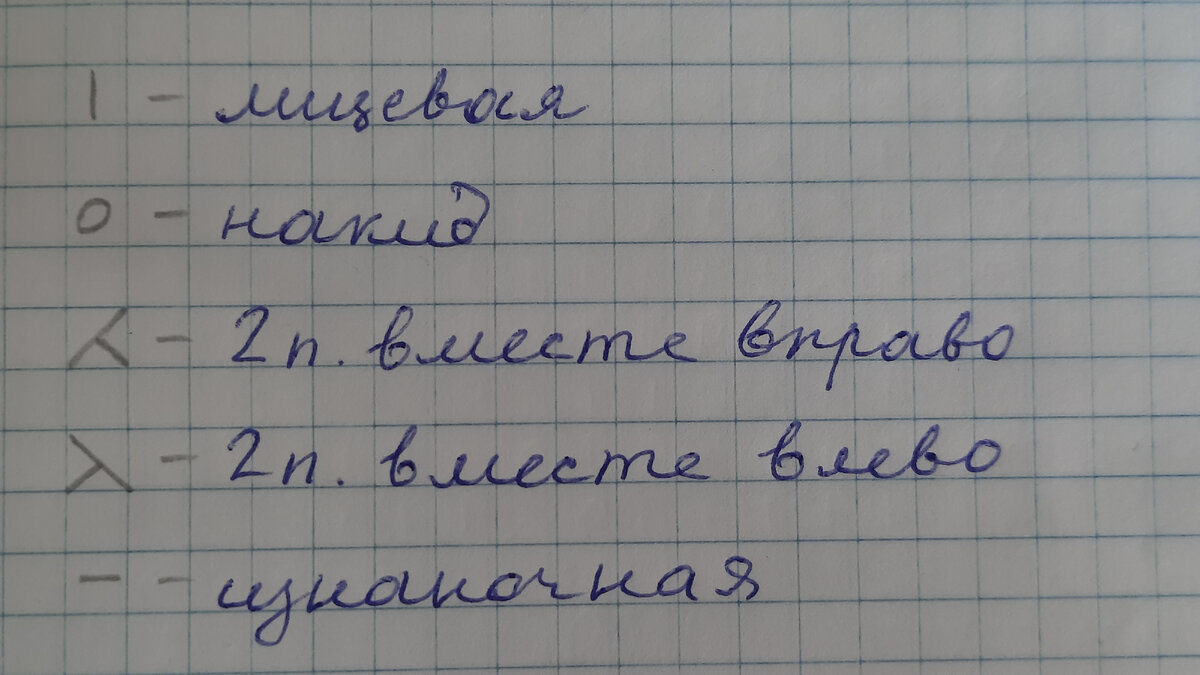 | - лицевая
о - накид
⋌ - 2 п. вместе вправо
⋋ - 2 п. вместе влево
- - изнаночная